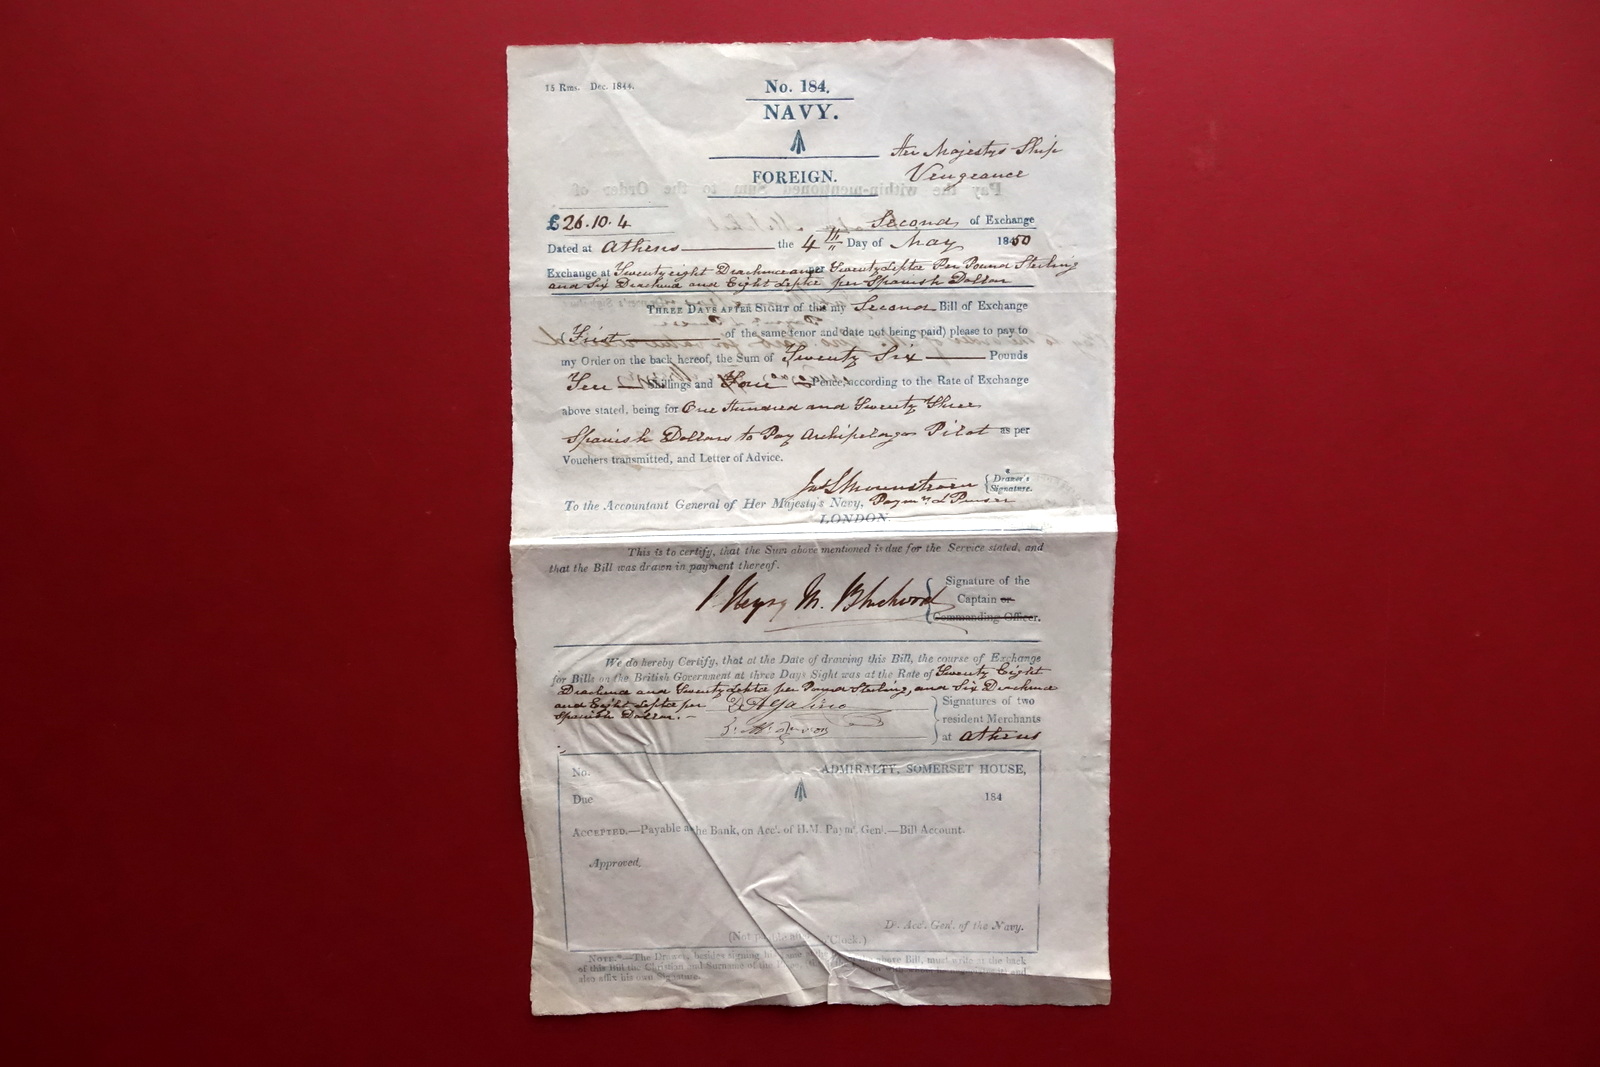 15 Rms. Dec. 1844.
No. 184.
NAVY.
FOREIGN.
Her Majestys Ship
Vengeance
£26.10.4
Second of Exchange
Dated at Athens the 4th Day of May 1850
Exchange at Twenty eight Drachmæ and per Twenty Leptæ Per Pound Sterling
and Six Drachmæ and Eight Leptæ per Spanish Dollar
THREE DAYS AFTER SIGHT of this my Second Bill of Exchange
(First of the same tenor and date not being paid) please to pay to
my Order on the back hereof, the Sum of Twenty Six Pounds
Ten Shillings and Four Pence, according to the Rate of Exchange
above stated, being for One Hundred and Twenty Three
Spanish Dollars to Pay Archipelago Pilot as per
Vouchers transmitted, and Letter of Advice.
Drawer's
Signature.
To the Accountant General of Her Majesty's Navy, Paymr. & Purser
LONDON.
This is to certify, that the Sum above mentioned is due for the Service stated, and
that the Bill was drawn in payment thereof.
Henry M. Blackwood
Signature of the
Captain or
Commanding Officer.
We do hereby Certify, that at the Date of drawing this Bill, the course of Exchange
for Bills on the British Government at three Days Sight was at the Rate of Twenty Eight
Drachmæ and Twenty Leptæ per Pound Sterling, and Six Drachmæ
and Eight Leptæ per
Spanish Dollar.
Signatures of two
resident Merchants
at Athens
No.
ADMIRALTY, SOMERSET HOUSE,
Due 184
ACCEPTED.—Payable at the Bank, on Acct. of H.M. Paymr. Genl.—Bill Account.
Approved,
Dy. Acct. Genl. of the Navy.
(Not payable after Clock.)
NOTE.—The Drawer, besides signing his name above Bill, must write at the back
of this Bill the Christian and Surname of the and
also affix his own Signature.